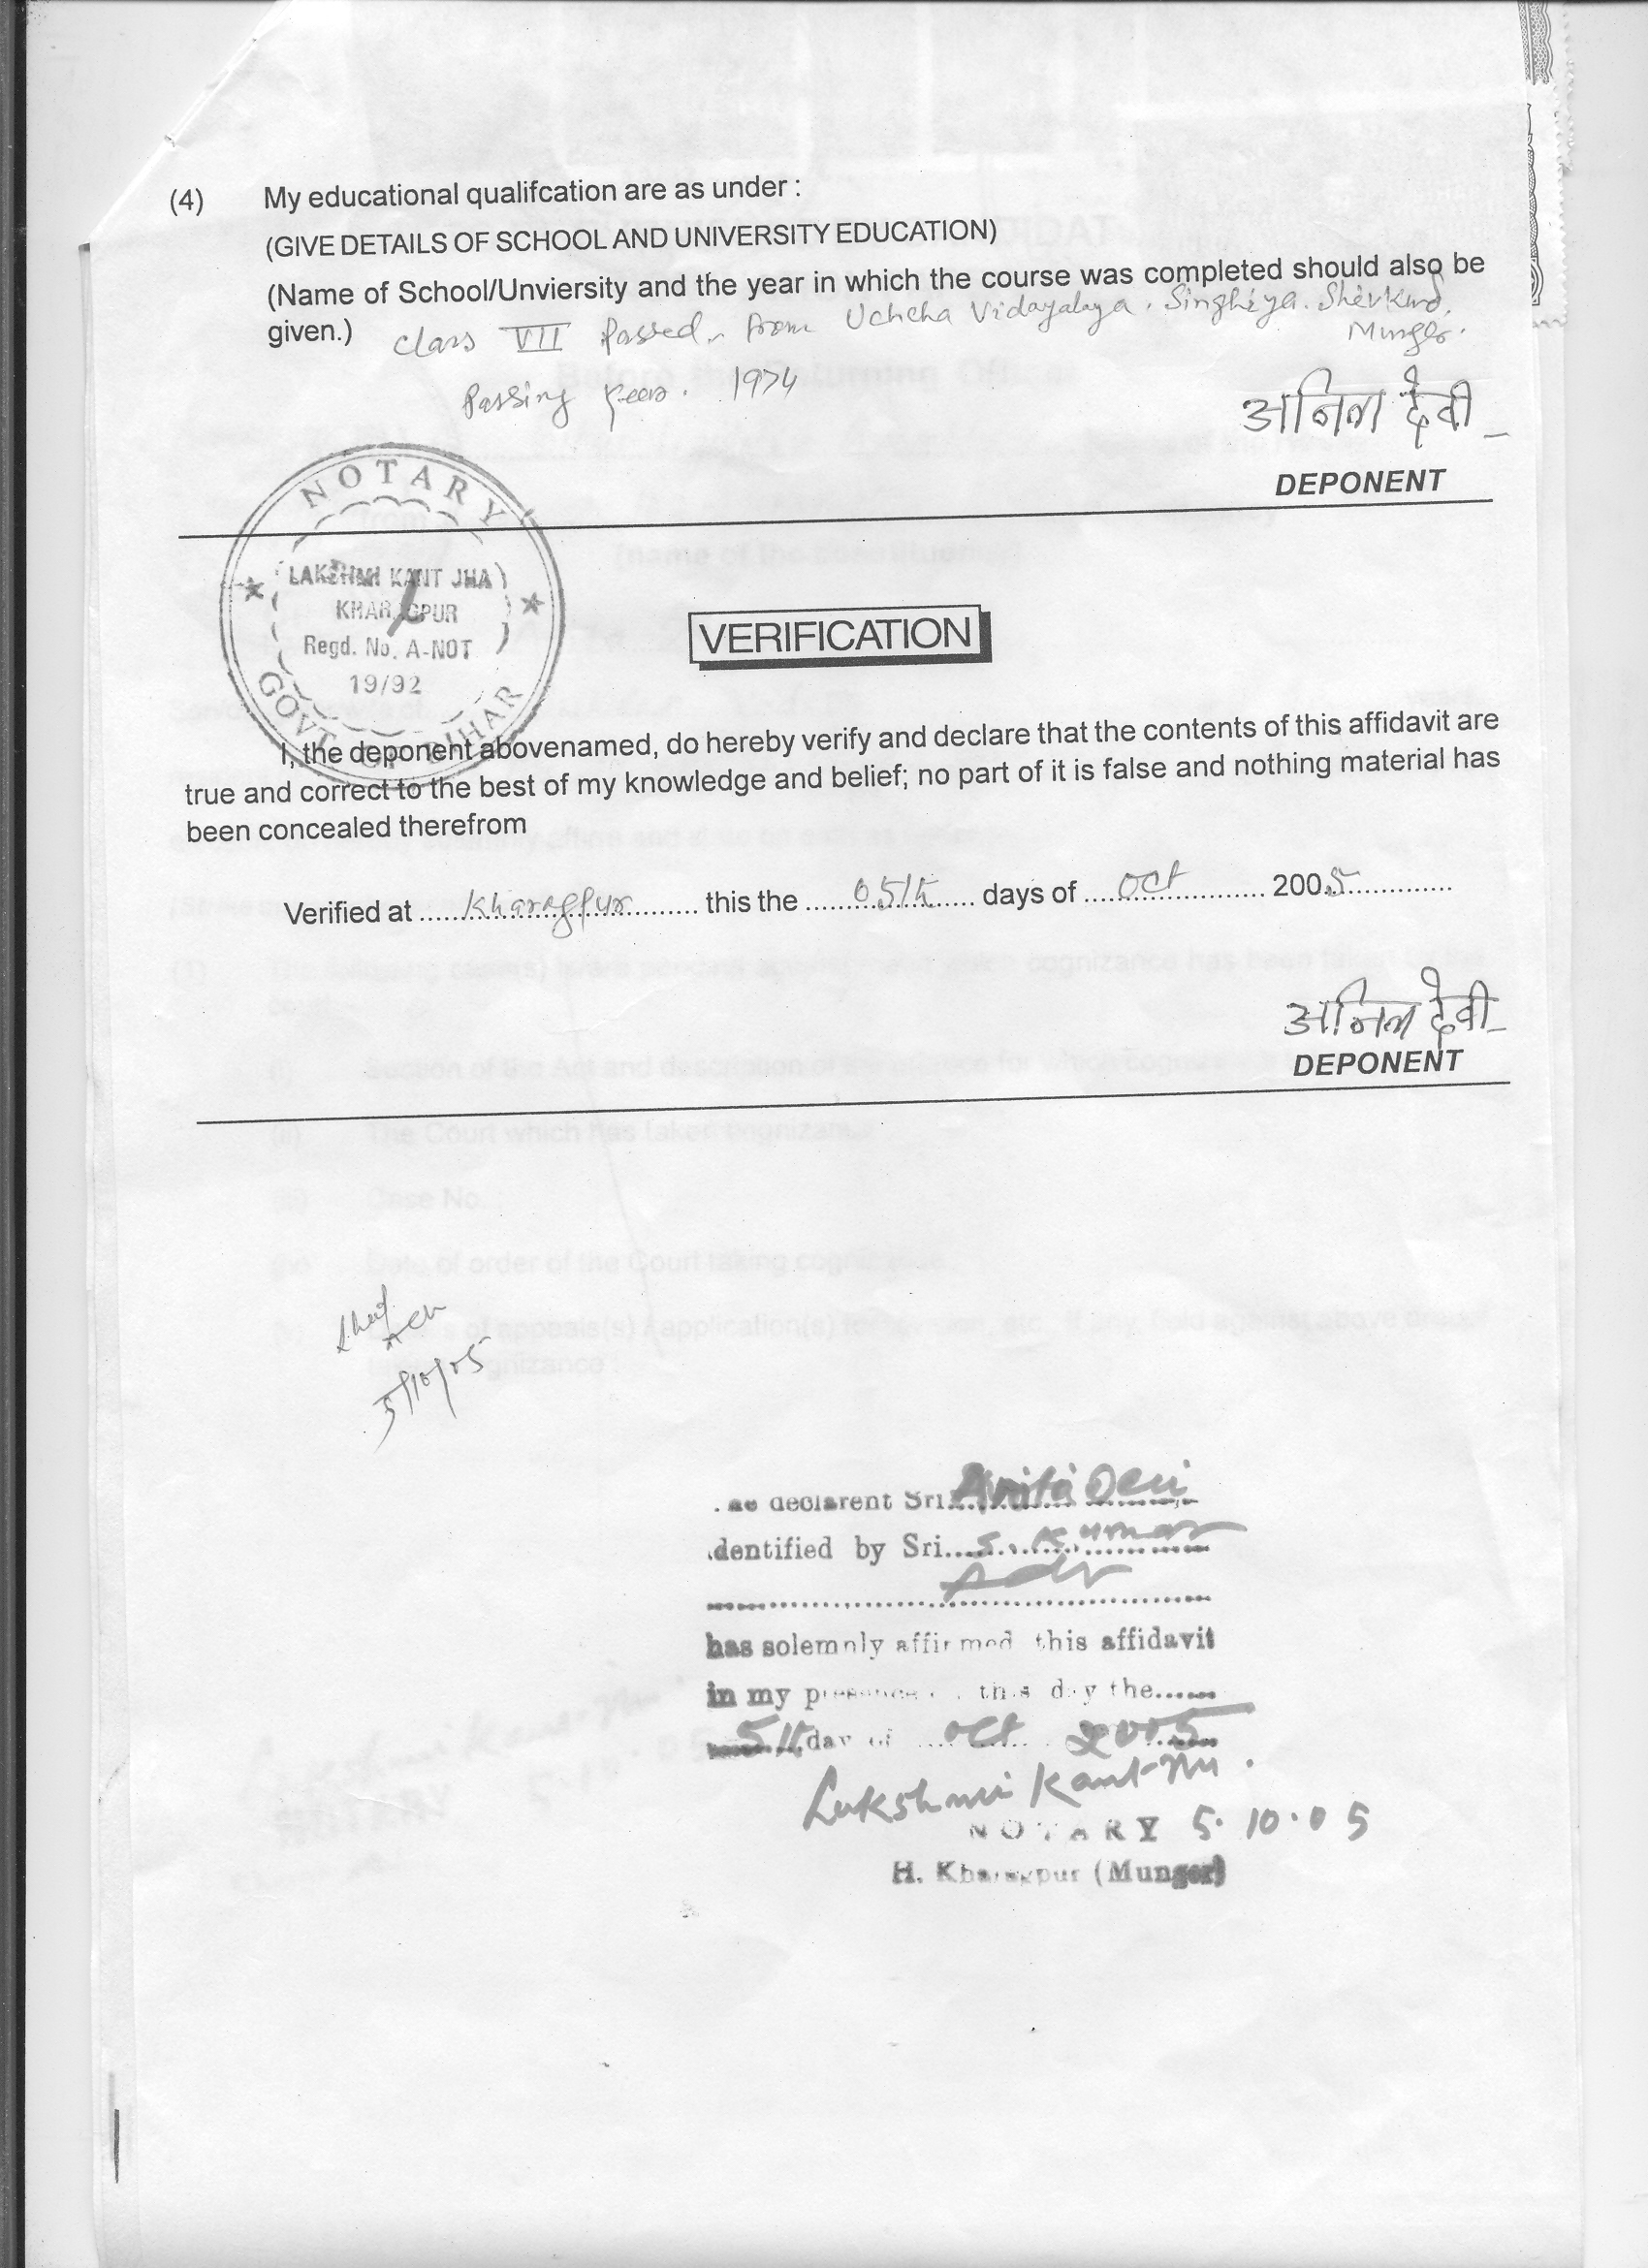 (4) My educational qualifcation are as under :
(GIVE DETAILS OF SCHOOL AND UNIVERSITY EDUCATION)
(Name of School/Unviersity and the year in which the course was completed should also be
given.) Class VII Passed, from Uchcha Vidayalaya. Singhiya.
Munger.
Passing Year. 1974
अनिता देवी
DEPONENT
NOTARY
LAKSHMI KANT JHA
KHARAGPUR
Regd. No. A-NOT
19/92
GOVT. OF BIHAR
VERIFICATION
I, the deponent abovenamed, do hereby verify and declare that the contents of this affidavit are
true and correct to the best of my knowledge and belief; no part of it is false and nothing material has
been concealed therefrom
Verified at Kharagpur this the 05th days of Oct 2005
अनिता देवी
DEPONENT
5/10/05
declarent Sri Anita Devi
dentified by Sri S. Kumar
Adv
has solemnly affirmed this affidavit
in my presence this day the
5th day of Oct 2005
Lakshmi Kant
NOTARY 5.10.05
H. Kharagpur (Munger)